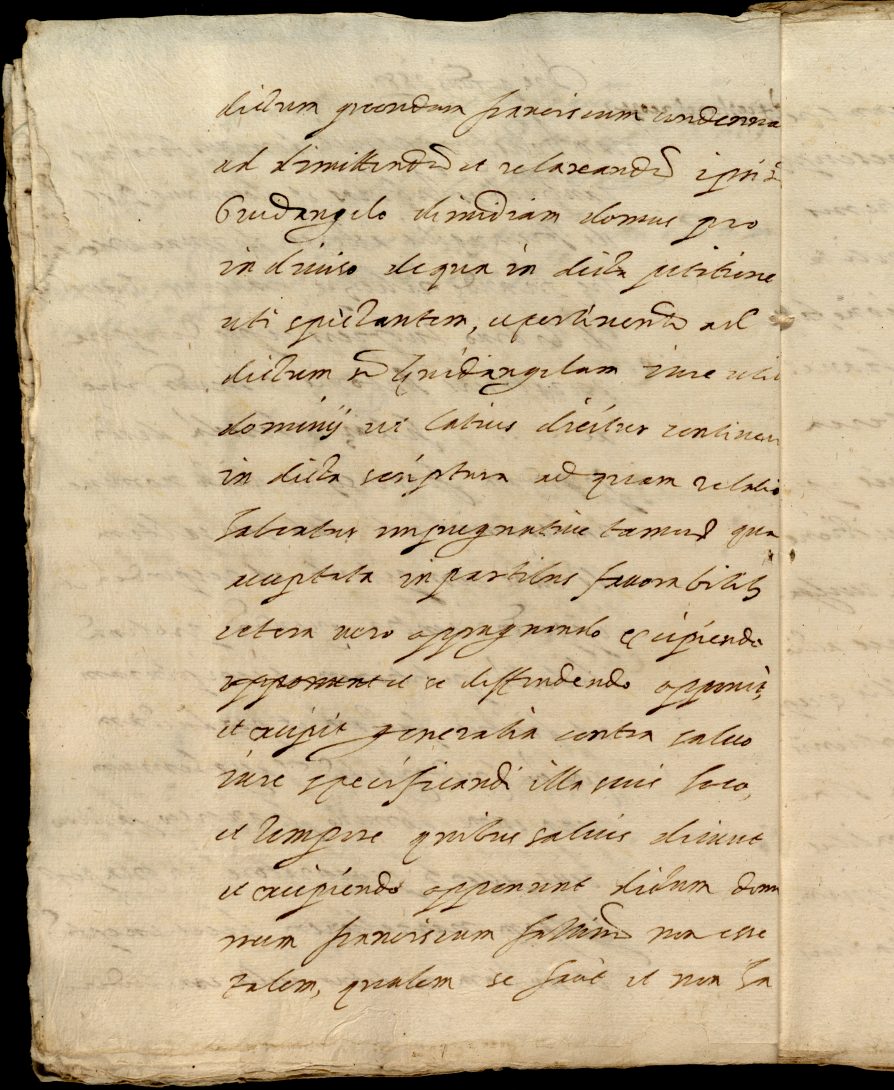 dictum quondam franciscum condemna
ad dimittendũ et relaxandũ ipsi
Guidangelo dimidiam domus pro
indiuiso de qua in dicta petitione
uti spectantem, et pertinentẽ ad
dictum Guidangelum iure utilis
dominij ut latius dicitur contineri
in dicta scriptura ad quam relatio
habeatur impugnatiue tamen qua
acceptata in partibus fauorabilib
cetera uero oppugnando excipiendo
et se deffendendo opponit,
et excipit generalia contra saluo
iure specificandi illa suis loco,
et tempore quibus saluis dicunt
et excipiendo opponunt dictum domi
num franciscum non esse
talem, qualem se facit et non ha